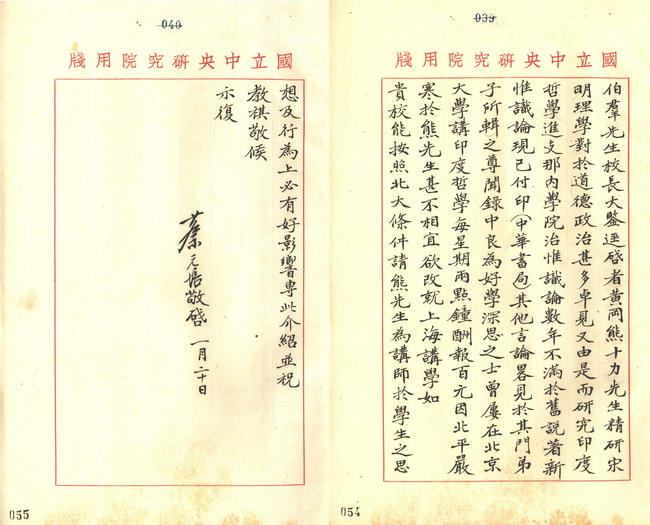 039
國立中央研究院用牋
伯羣先生校長大鑒逕啓者黃岡熊十力先生精研宋
明理學對於道德政治甚多卓見又由是而研究印度
哲學進支那內學院治惟識論數年不滿於舊說著新
惟識論現已付印(中華書局)其他言論畧見於其門弟
子所輯之尊聞錄中良為好學深思之士曾屢在北京
大學講印度哲學每星期兩點鐘酬報百元因北平嚴
寒於熊先生甚不相宜欲改就上海講學如
貴校能按照北大條件請熊先生為講師於學生之思
054
040
國立中央研究院用牋
想及行為上必有好影響專此介紹並祝
教祺敬候
示復
蔡元培敬啓 一月二十日
055